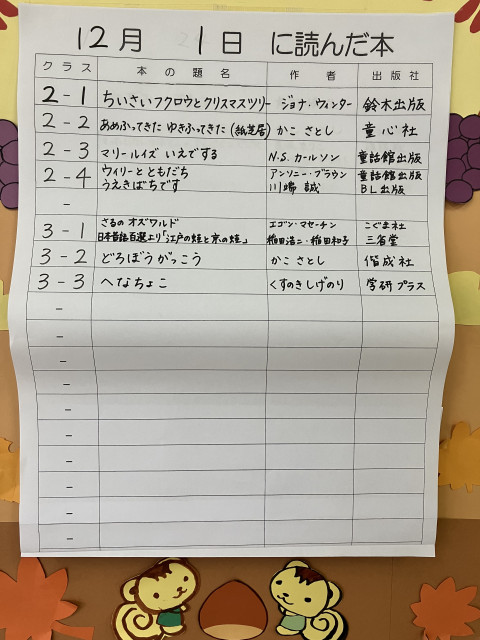 12月 1日 に読んだ本
クラス 本の題名 作者 出版社
2-1 ちいさいフクロウとクリスマスツリー ジョナ・ウィンター 鈴木出版
2-2 あめふってきた ゆきふってきた(紙芝居) かこ さとし 童心社
2-3 マリールイズ いえでする N.S.カールソン 童話館出版
2-4 ウィリーと ともだち アンソニー・ブラウン 童話館出版
うえきばちです 川端 誠 BL出版
-
3-1 さるの オズワルド エゴン・マチーセン こぐま社
日本昔話百選より「江戸の蛙と京の蛙」 稲田浩二・稲田和子 三省堂
3-2 どろぼうがっこう かこ さとし 偕成社
3-3 へなちょこ くすのきしげのり 学研プラス
-
-
-
-
-
-
-
-
-
-